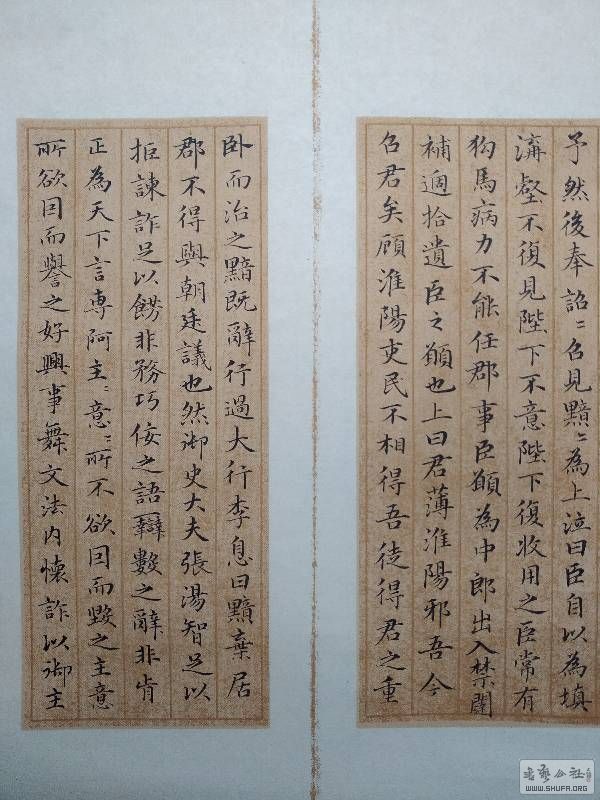 予然後奉詔〻召見黯〻為上泣曰臣自以為填
溝壑不復見陛下不意陛下復收用之臣常有
狗馬病力不能任郡事臣願為中郎出入禁闥
補過拾遺臣之願也上曰君薄淮陽邪吾今
召君矣顧淮陽吏民不相得吾徒得君之重
卧而治之黯既辭行過大行李息曰黯棄居
郡不得與朝廷議也然御史大夫張湯智足以
拒諫詐足以餝非務巧佞之語辯數之辭非肯
正為天下言專阿主〻意〻所不欲因而毀之主意
所欲因而譽之好興事舞文法内懷詐以御主
書藝公社
WWW.SHUFA.ORG